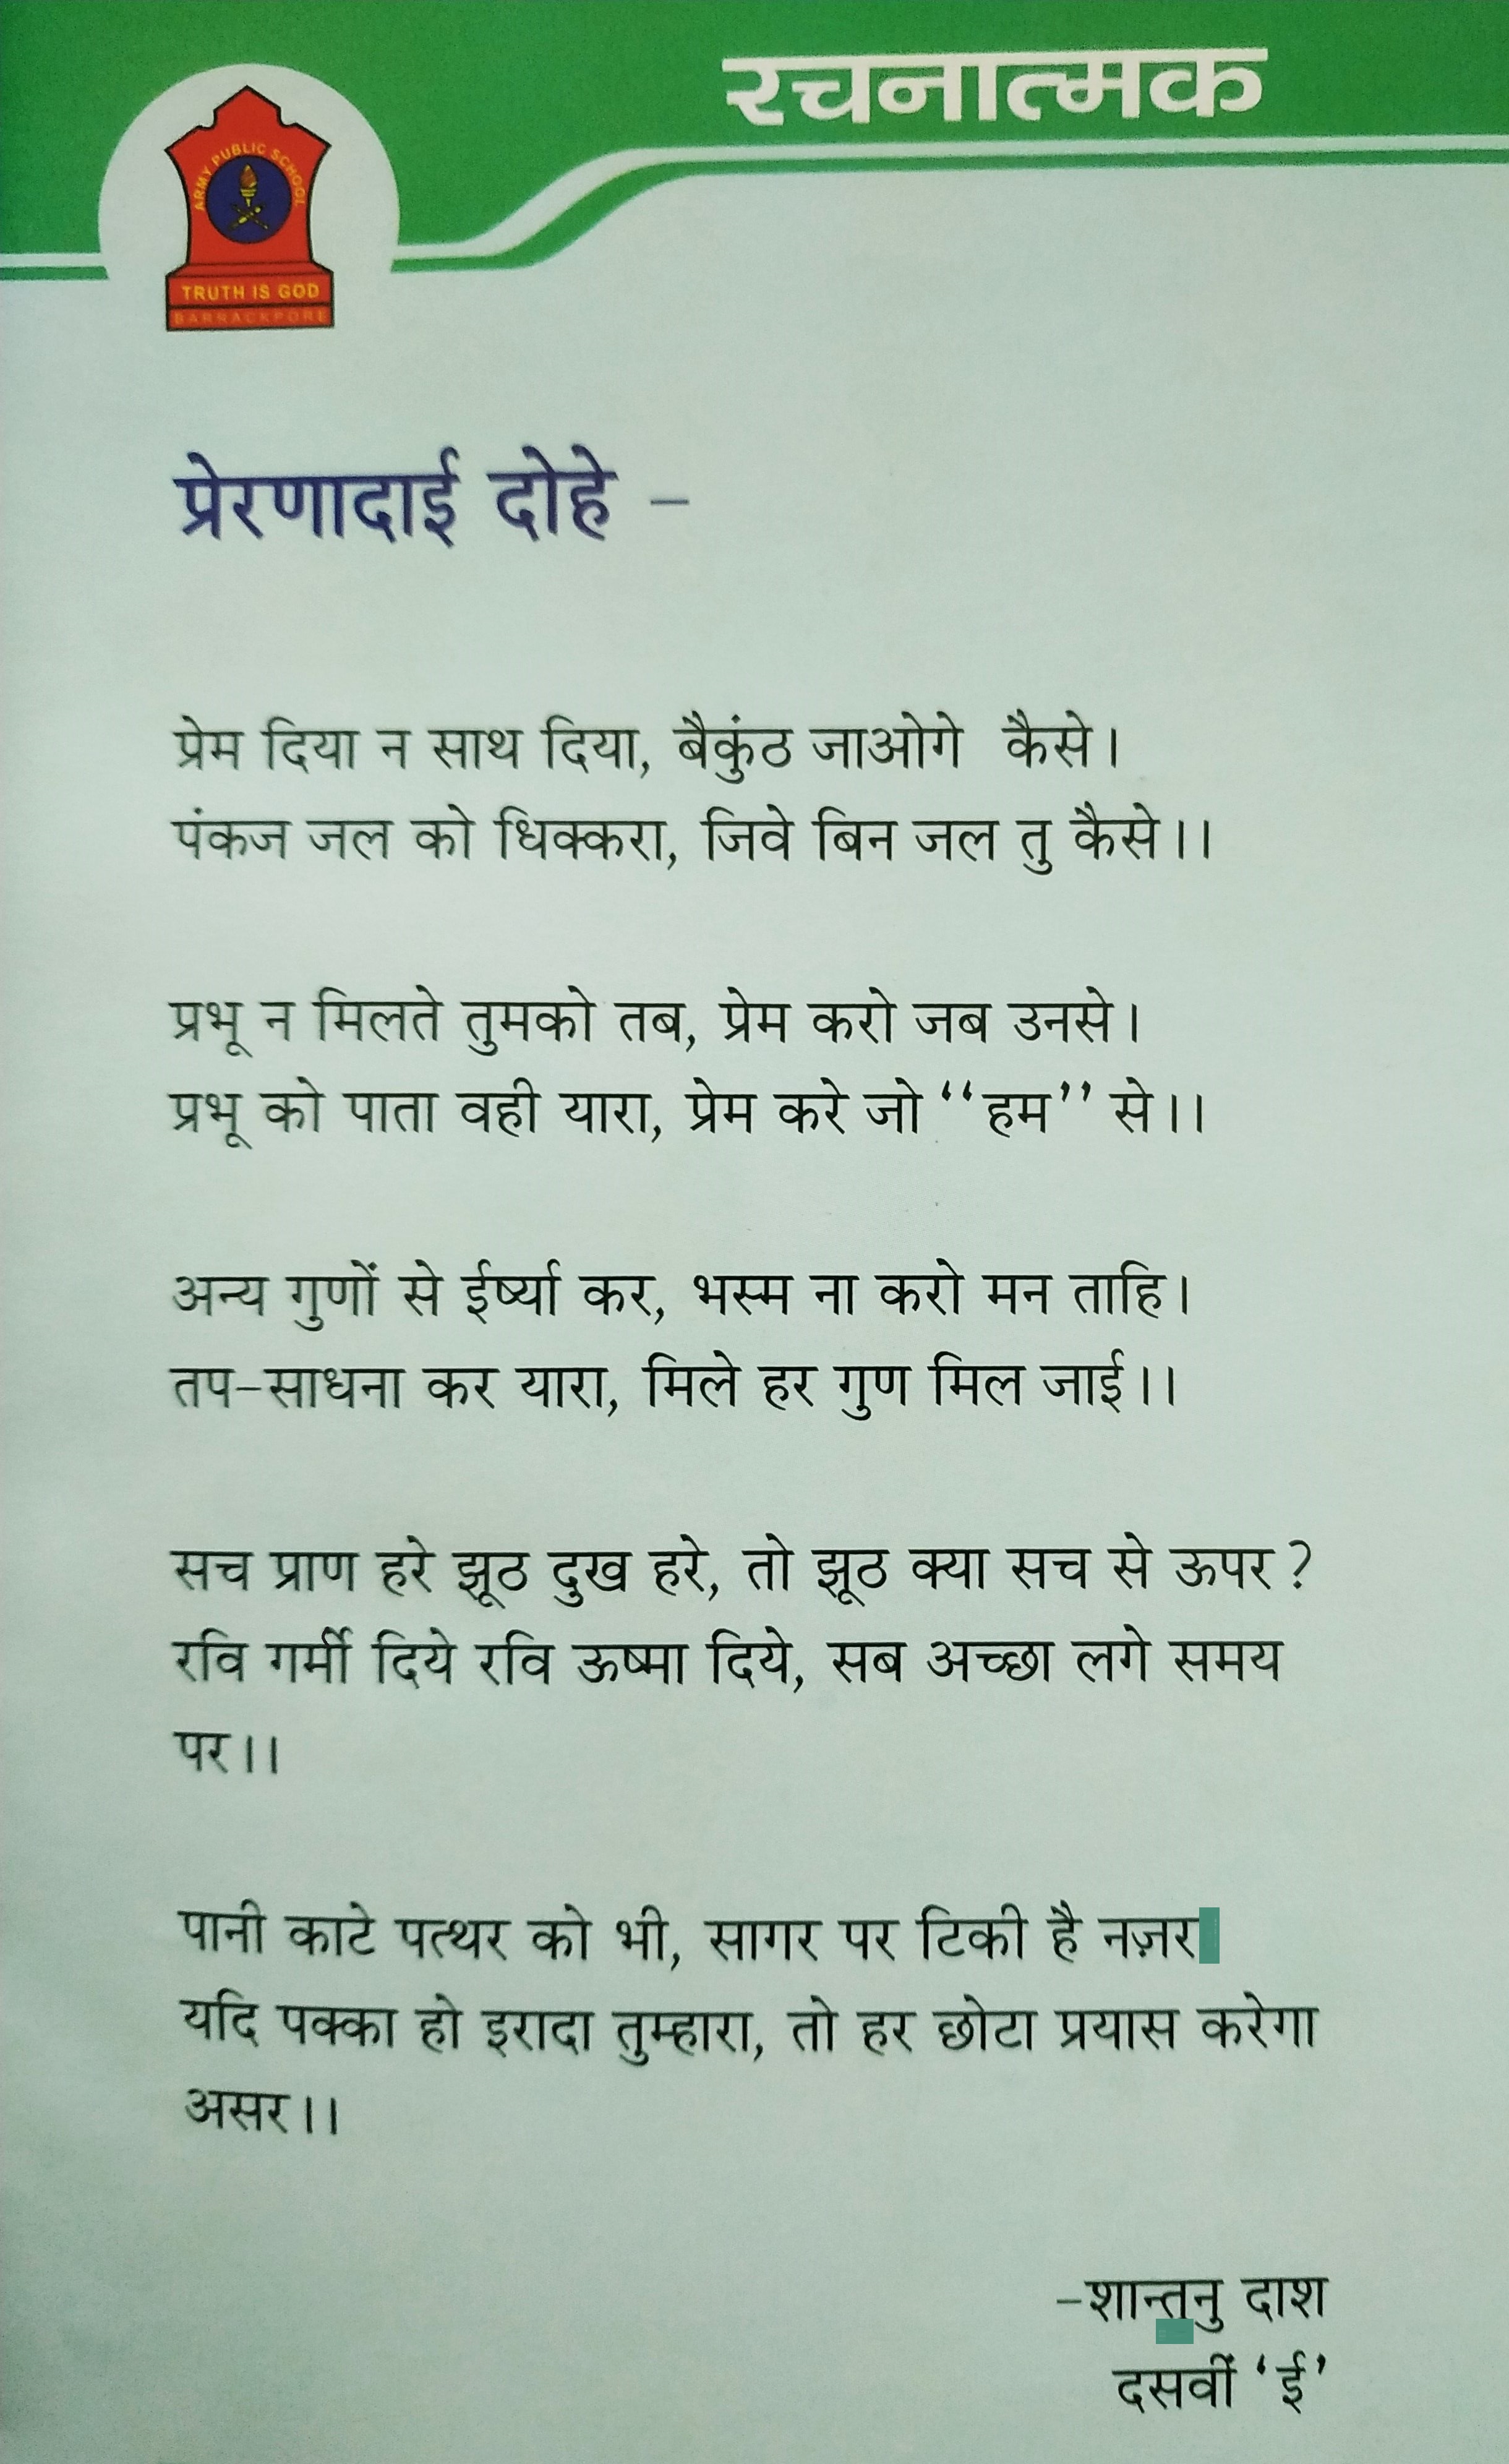 रचनात्मक
ARMY PUBLIC SCHOOL
TRUTH IS GOD
BARRACKPORE
प्रेरणादाई दोहे –
प्रेम दिया न साथ दिया, बैकुंठ जाओगे कैसे।
पंकज जल को धिक्करा, जिवे बिन जल तु कैसे।।
प्रभू न मिलते तुमको तब, प्रेम करो जब उनसे।
प्रभू को पाता वही यारा, प्रेम करे जो ‘‘हम’’ से।।
अन्य गुणों से ईर्ष्या कर, भस्म ना करो मन ताहि।
तप–साधना कर यारा, मिले हर गुण मिल जाई।।
सच प्राण हरे झूठ दुख हरे, तो झूठ क्या सच से ऊपर?
रवि गर्मी दिये रवि ऊष्मा दिये, सब अच्छा लगे समय
पर।।
पानी काटे पत्थर को भी, सागर पर टिकी है नज़र
यदि पक्का हो इरादा तुम्हारा, तो हर छोटा प्रयास करेगा
असर।।
–शान्तनु दाश
दसवीं ‘ई’